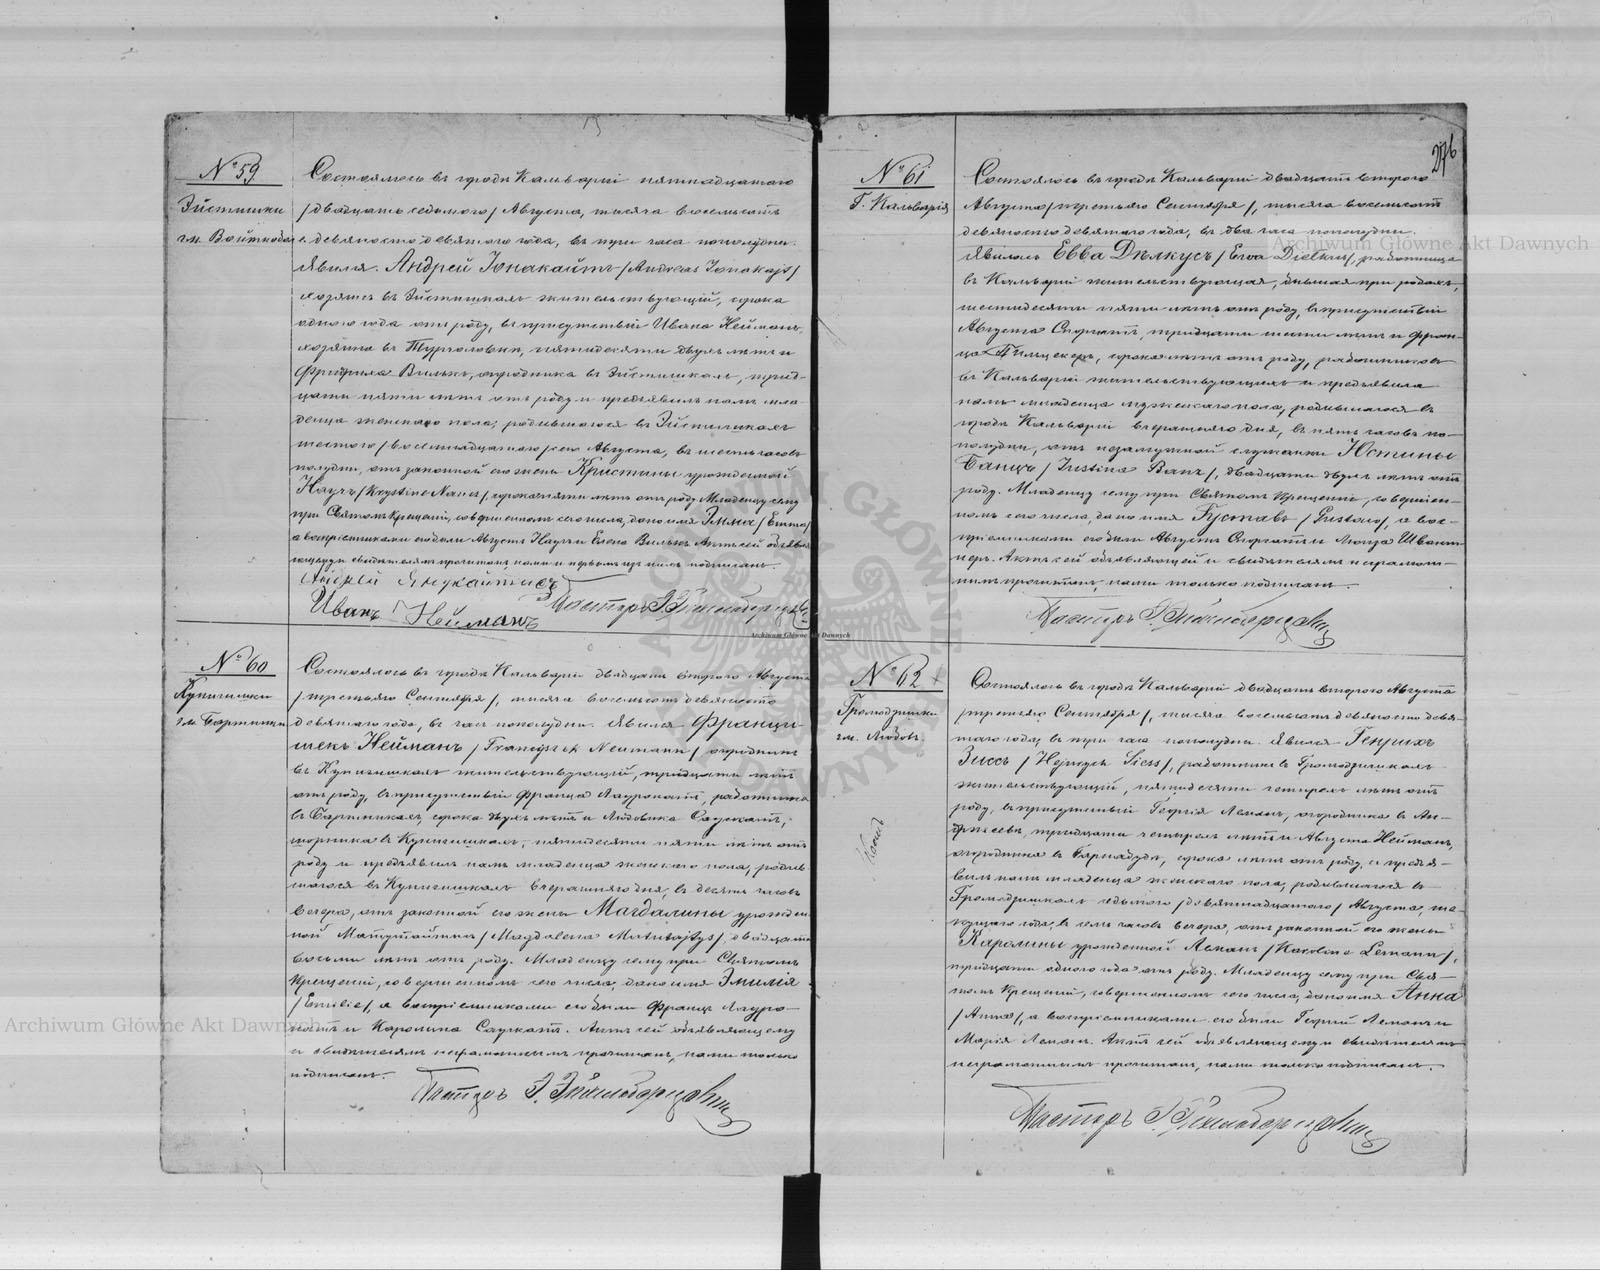 № 59
Эйстишки
гм. Войткобол
Состоялось въ городѣ Кальваріи пятнадцатаго
/двадцать седьмого/ Августа, тысяча восемьсотъ
девяносто девятаго года, въ три часа пополудни.
Явился Андрей Іонакайтъ /Andreas Jonakajt/
хозяинъ въ Эйстишкахъ жительствующій, сорока
одного года отъ роду, въ присутствіи Ивана Нейманъ,
хозяина въ Турголовки, пятидесяти двухъ лѣтъ и
Фридриха Вилькъ, огородника въ Эйстишкахъ, трид-
цати пяти лѣтъ отъ роду и предъявилъ намъ мла-
денца женскаго пола, родившагося въ Эйстишкахъ
шестого /восемнадцатаго/ сего Августа, въ шесть часовъ
полудни, отъ законной его жены Кристины урожденной
Науъ /Krystine Naues/, сорока пяти лѣтъ отъ роду. Младенцу сему
при Святомъ Крещеніи, совершенномъ сего числа, дано имя Эмма /Emma/
а воспріемниками его были Августъ Науъ и Елена Вилькъ. Актъ сей объявля
ющему и свидѣтелямъ прочитанъ, нами и первымъ изъ нихъ подписанъ.
Андрей Янукайтисъ
Иванъ Нейманъ
Пасторъ
№ 60
Купишки
гм. Бартники
Состоялось въ городѣ Кальваріи двадцать второго Августа
/третьяго Сентября/, тысяча восемьсотъ девяносто
девятаго года, въ часъ пополудни. Явился Францы-
шекъ Нейманъ /Francyszek Neumann/ огородникъ
въ Купишкахъ жительствующій, тридцати лѣтъ
отъ роду, въ присутствіи Франца Лаурокатъ, работника
въ Бартникахъ, сорока двухъ лѣтъ и Людвика Саукатъ,
шорника въ Купишкахъ, пятидесяти пяти лѣтъ отъ
роду и предъявилъ намъ младенца женскаго пола, родив-
шагося въ Купишкахъ вчерашняго дня, въ десять часовъ
вечера, отъ законной его жены Магдалины урожден-
ной Матутайтисъ /Magdalena Matutajtys/, двадцати
восьми лѣтъ отъ роду. Младенцу сему при Святомъ
Крещеніи, совершенномъ сего числа, дано имя Эмилія
/Emilie/, а воспріемниками его были Францъ Лауро-
катъ и Каролина Саукатъ. Актъ сей объявляющему
и свидѣтелямъ неграмотнымъ прочитанъ, нами только
подписанъ.
Пасторъ
276
№ 61
Г. Кальварія
Состоялось въ городѣ Кальваріи двадцать второго
Августа /третьяго Сентября/, тысяча восемьсотъ
девяносто девятаго года, въ два часа пополудни.
Явилась Евва Дѣлкусъ /Ewa Dielkus/, работница
въ Кальваріи жительствующая, бывшая при родахъ,
шестидесяти пяти лѣтъ отъ роду, въ присутствіи
Августа Спогатъ, тридцати шести лѣтъ и Фран-
ца Пильцекеръ, сорока лѣтъ отъ роду, работниковъ
въ Кальваріи жительствующихъ и предъявила
намъ младенца мужескаго пола, родившагося въ
городѣ Кальваріи вчерашняго дня, въ пять часовъ по-
полудни, отъ незамужней служанки Юстины
Банцъ /Justina Banz/, двадцати двухъ лѣтъ отъ
роду. Младенцу сему при Святомъ Крещеніи, совершен-
номъ сего числа, дано имя Густавъ /Gustaw/, а вос-
пріемниками его были Августъ Спогатъ и Луиза Шванк-
неръ. Актъ сей объявляющей и свидѣтелямъ неграмот-
нымъ прочитанъ, нами только подписанъ.
Пасторъ
№ 62
Громадзишки
гм. Любовъ
Состоялось въ городѣ Кальваріи двадцать второго Августа
/третьяго Сентября/, тысяча восемьсотъ девяносто девя-
таго года, въ три часа пополудни. Явился Генрихъ
Зиссъ /Hejnrych Siess/, работникъ въ Громадзишкахъ
жительствующій, пятидесяти четырехъ лѣтъ отъ
роду, въ присутствіи Георгія Леманъ, огородника въ Ан-
тридцати четырехъ лѣтъ и Августа Нейманъ,
огородника въ сорока лѣтъ отъ роду, и предъя-
вилъ намъ младенца женскаго пола, родившагося въ
Громадзишкахъ седьмого /девятнадцатаго/ Августа, те-
кущаго года, въ семь часовъ вечера, отъ законной его жены
Каролины урожденной Леманъ /Karoline Lemann/,
тридцати одного года отъ роду. Младенцу сему при Свя-
томъ Крещеніи, совершенномъ сего числа, дано имя Анна
/Anna/, а воспріемниками его были Георгій Леманъ и
Марія Леманъ. Актъ сей объявляющему и свидѣтелямъ
неграмотнымъ прочитанъ, нами только подписанъ.
Пасторъ
Archiwum Główne Akt Dawnych
Archiwum Główne Akt Dawnych
Archiwum Główne Akt Dawnych